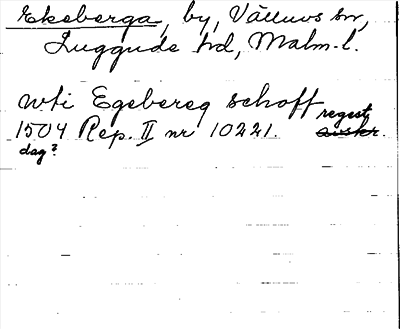 Ekeberga, by, Välluvs sn,
Luggude hd, Malm. l.
wti Egebereg schoff
1504 Rep. II nr 10221. regest, avskr.
dag?